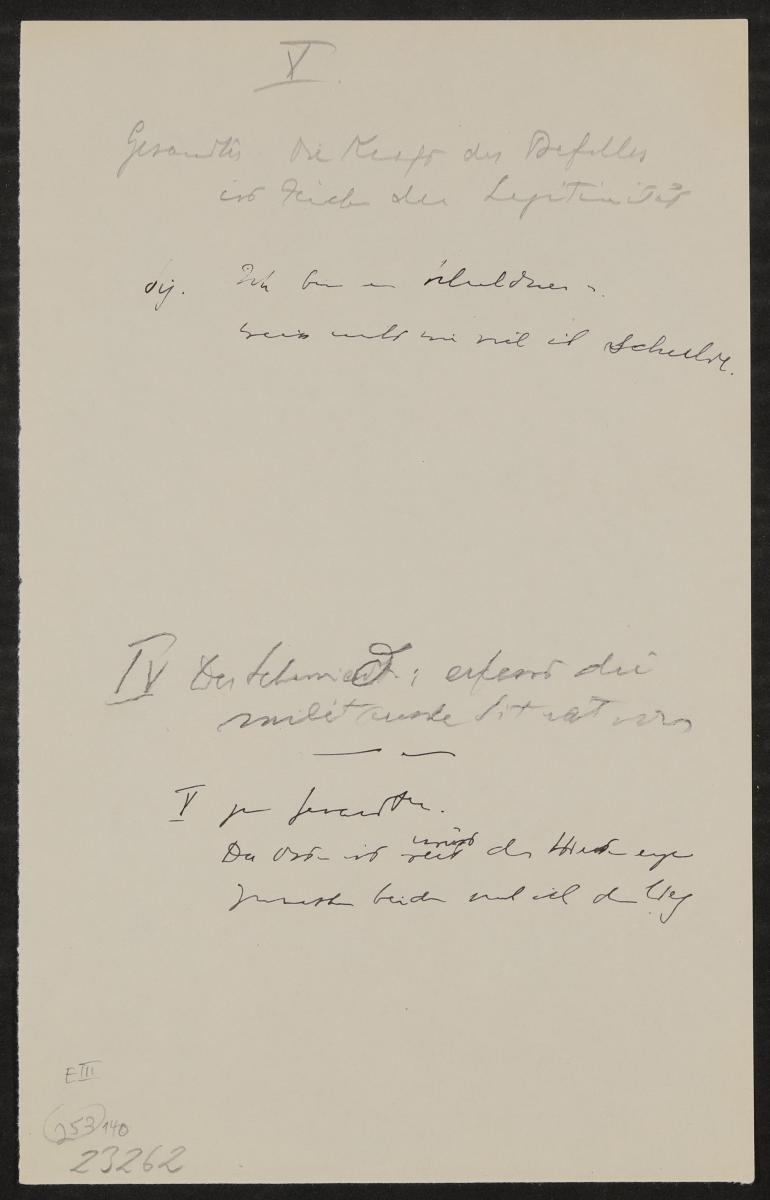 V.
Gesandter Die Kraft des Befehles
ist Zeichen der Legitimität
Sig. Ich bin ein Schuldner u.
weiss nicht wie viel ich schulde.
IV Der Schmied: erfasst die
militärische Situation
V zu Gesandten.
Der Osten ist weit der Westen enge
zwischen beiden will ich den Weg
E III
253 140
23262